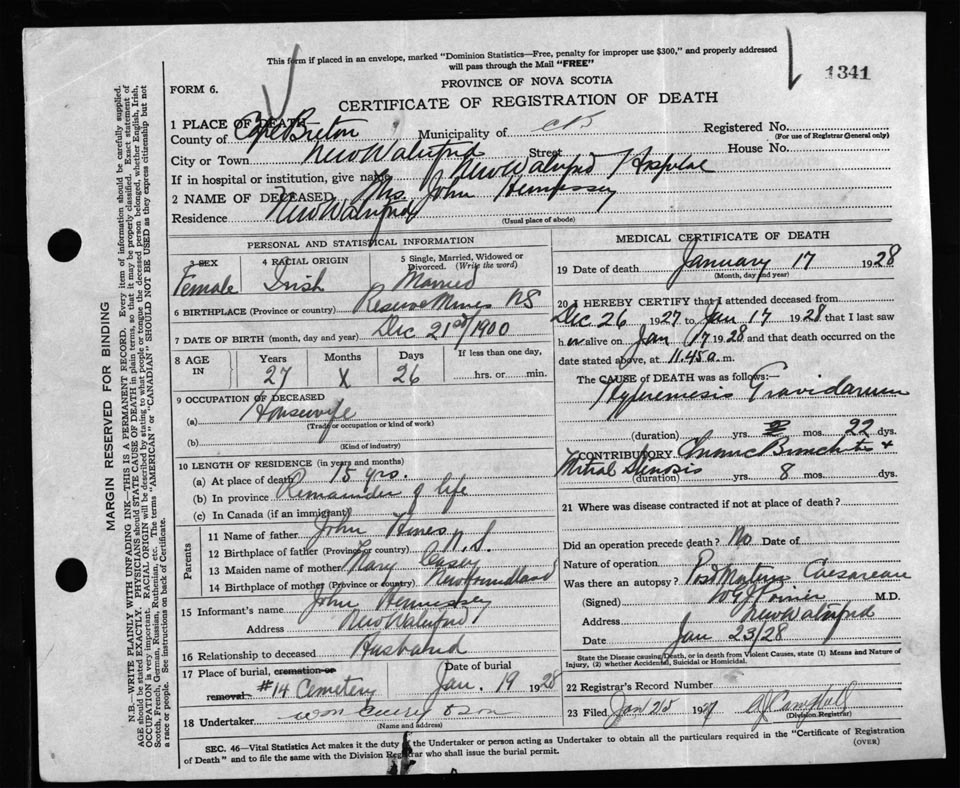 This form if placed in an envelope, marked "Dominion Statistics—Free, penalty for improper use $300," and properly addressed
will pass through the Mail "FREE"
1341
FORM 6.
PROVINCE OF NOVA SCOTIA
CERTIFICATE OF REGISTRATION OF DEATH
1 PLACE OF DEATH
County of Cape Breton Municipality of C B Registered No.
(For use of Registrar General only)
City or Town New Waterford Street House No.
If in hospital or institution, give name New Waterford Hospital
2 NAME OF DECEASED Mrs. John Hennessey
Residence New Waterford
(Usual place of abode)
PERSONAL AND STATISTICAL INFORMATION
3 SEX 4 RACIAL ORIGIN 5 Single, Married, Widowed or Divorced. (Write the word)
Female Irish Married
6 BIRTHPLACE (Province or country) Reserve Mines NS
7 DATE OF BIRTH (month, day and year) Dec 21st/1900
8 AGE IN Years Months Days If less than one day,
27 X 26 hrs. or min.
9 OCCUPATION OF DECEASED
(a) Housewife
(Trade or occupation or kind of work)
(b)
(Kind of industry)
10 LENGTH OF RESIDENCE (in years and months)
(a) At place of death 15 yrs.
(b) In province Remainder of life
(c) In Canada (if an immigrant)
Parents
11 Name of father John Hines
12 Birthplace of father (Province or country) N.S.
13 Maiden name of mother Mary Casey
14 Birthplace of mother (Province or country) Newfoundland
15 Informant's name John Hennessey
Address New Waterford
16 Relationship to deceased Husband
17 Place of burial, cremation or removal Date of burial
#14 Cemetery Jan. 19 1928
18 Undertaker Wm & Son
(Name and address)
MEDICAL CERTIFICATE OF DEATH
19 Date of death January 17 1928
(Month, day and year)
20 I HEREBY CERTIFY that I attended deceased from
Dec 26 1927 to Jan 17 1928 that I last saw
her alive on Jan 17 1928 and that death occurred on the
date stated above, at 11.45 a. m.
The CAUSE of DEATH was as follows:—
Hyperemesis Gravidarum
(duration) yrs. mos. 22 dys.
CONTRIBUTORY Chronic Bronchitis &
Mitral Stenosis
(duration) yrs. 8 mos. dys.
21 Where was disease contracted if not at place of death?
Did an operation precede death? No Date of
Nature of operation
Was there an autopsy? Post Mortem Caesarean
(Signed) M.D.
Address New Waterford
Date Jan 23/28
State the Disease causing Death, or in death from Violent Causes, state (1) Means and Nature of
Injury, (2) whether Accidental, Suicidal or Homicidal.
22 Registrar's Record Number
23 Filed Jan 25 192 Campbell
(Division Registrar)
SEC. 46—Vital Statistics Act makes it the duty of the Undertaker or person acting as Undertaker to obtain all the particulars required in the "Certificate of Registration
of Death" and to file the same with the Division Registrar who shall issue the burial permit.
(OVER)
MARGIN RESERVED FOR BINDING
N.B.—WRITE PLAINLY WITH UNFADING INK—THIS IS A PERMANENT RECORD. Every item of information should be carefully supplied.
AGE should be stated EXACTLY. PHYSICIANS should STATE CAUSE OF DEATH in plain terms, so that it may be properly classified. Exact statement of
OCCUPATION is very important. RACIAL ORIGIN will be described by stating to what people or tongue the deceased person belonged, whether English, Irish,
Scotch, French, German, Russian, Ruthenian, etc. The terms "AMERICAN" or "CANADIAN" SHOULD NOT BE USED as they express citizenship but not
a race or people. See instructions on back of Certificate.